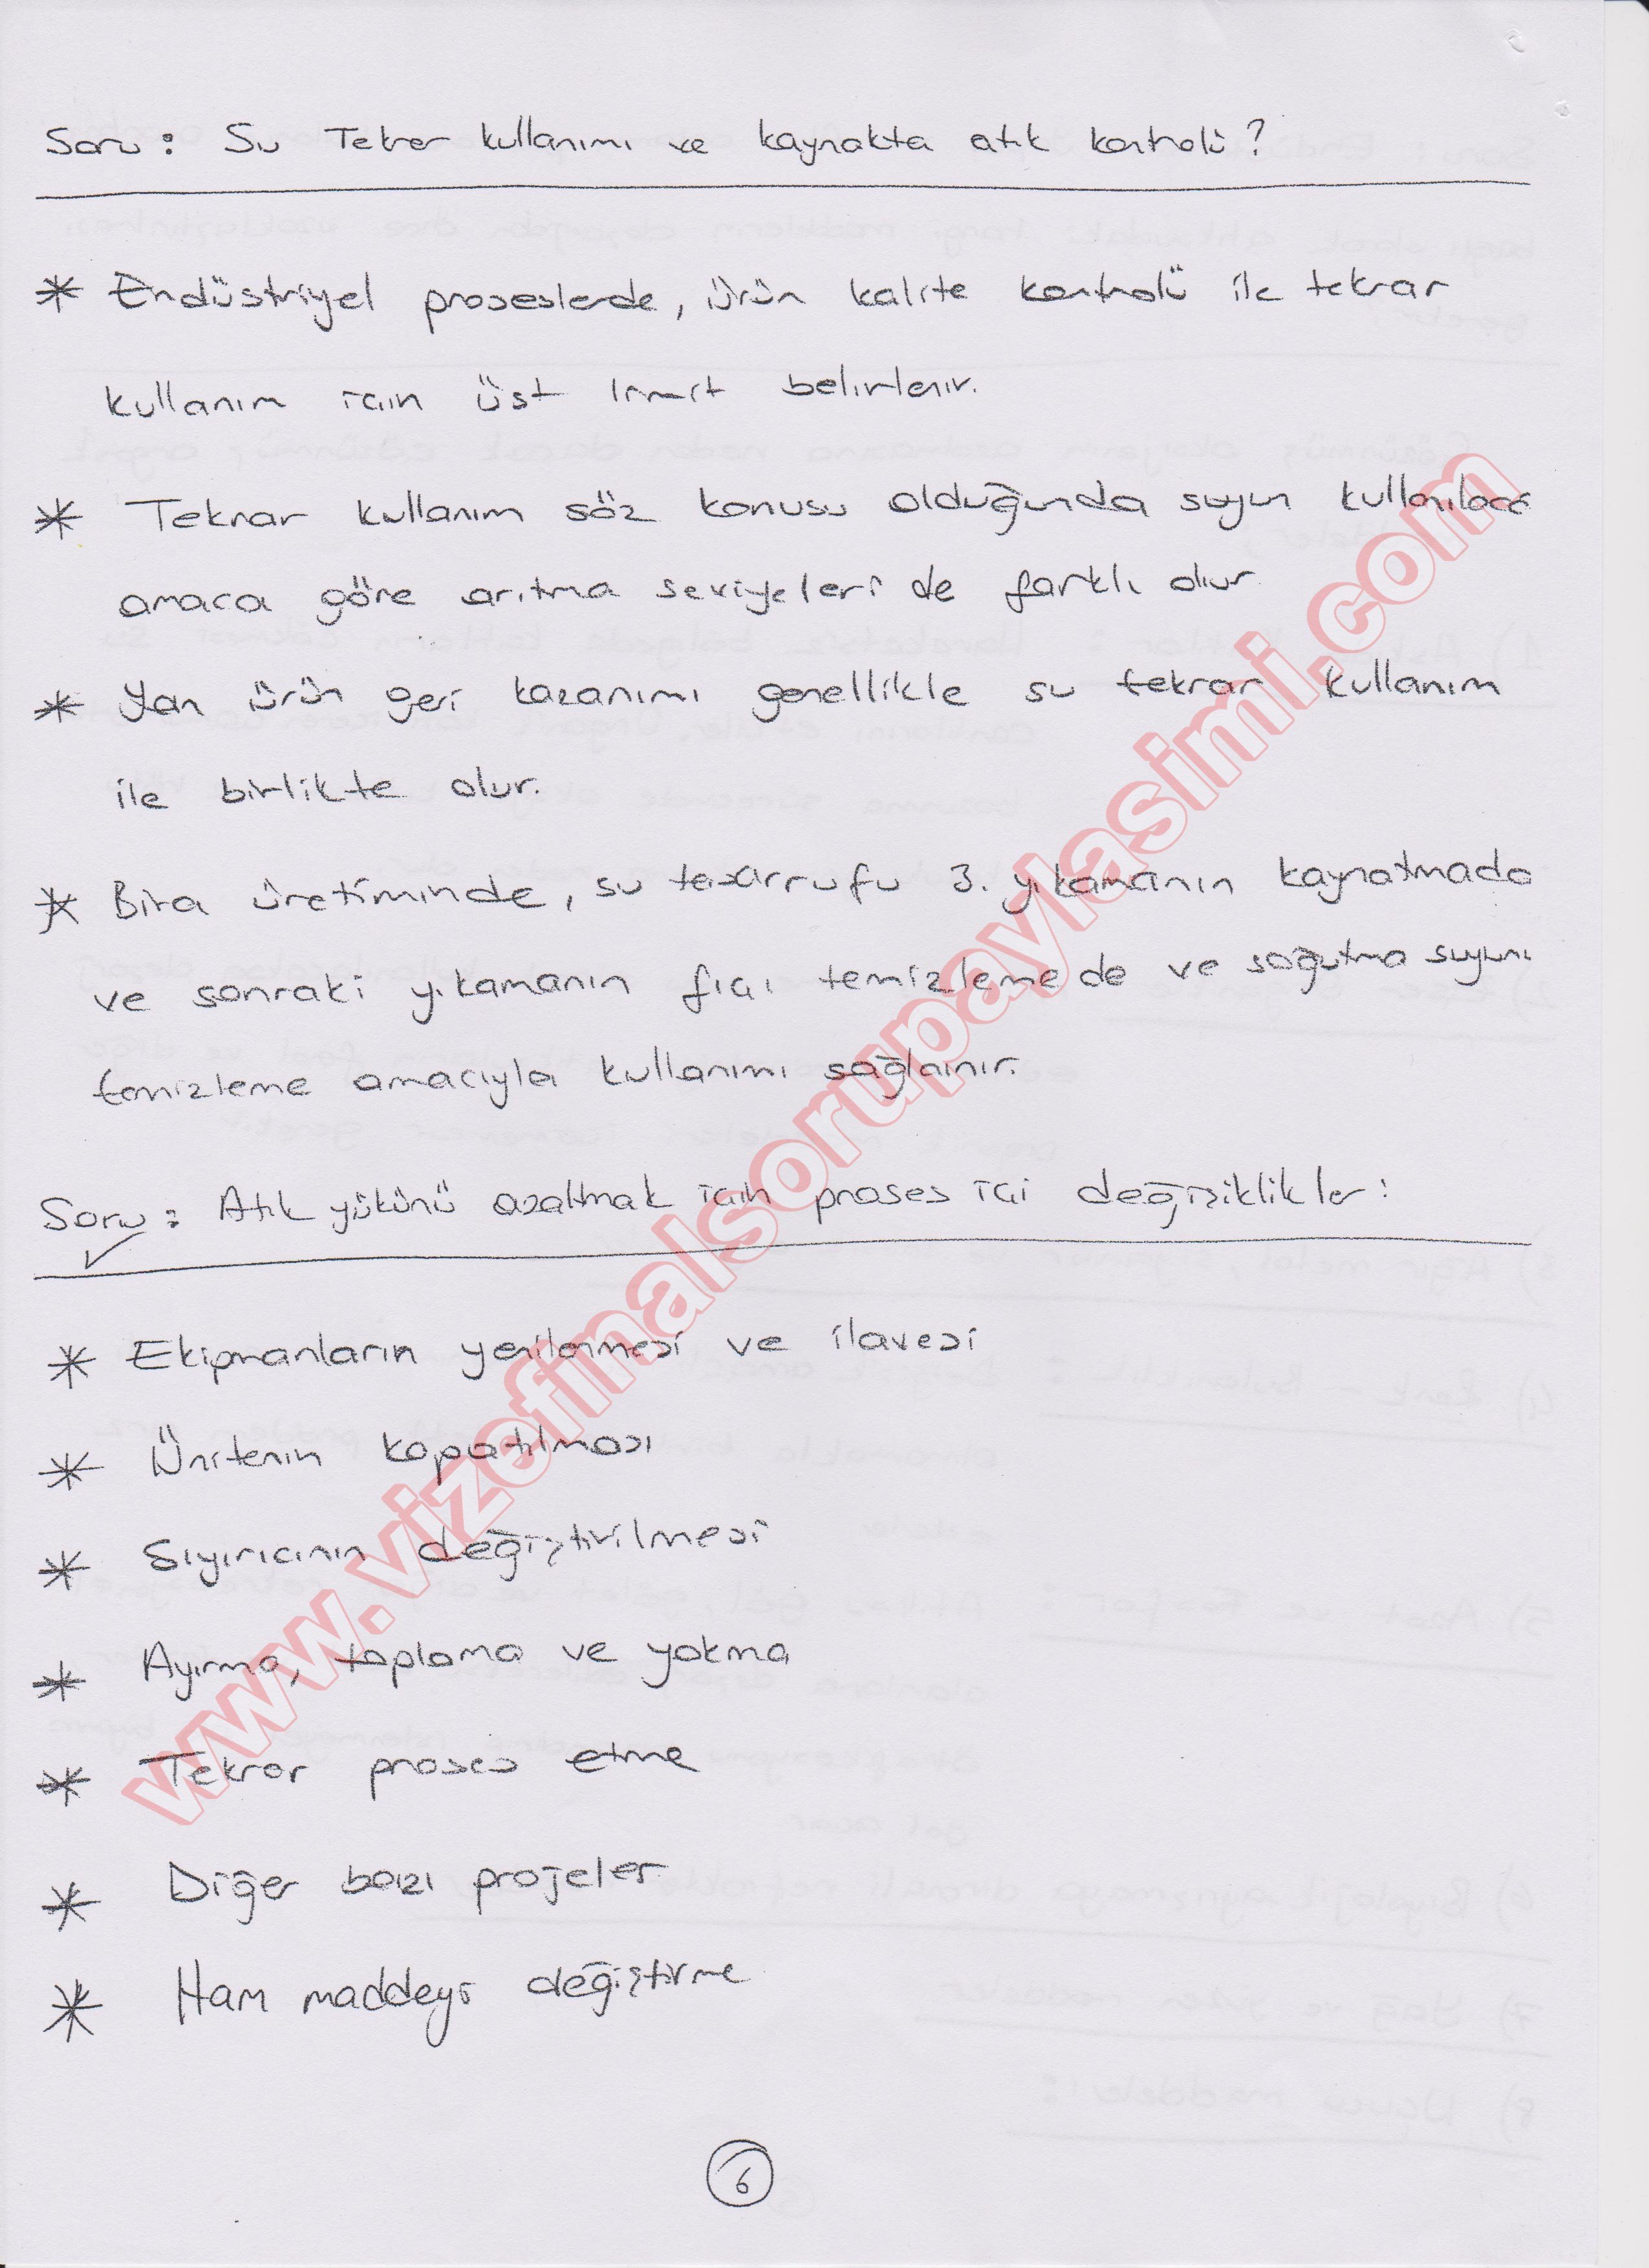 Soru : Su Tekrar kullanımı ve kaynakta atık kontrolü ?
* Endüstriyel proseslerde, ürün kalite kontrolü ile tekrar
kullanım için üst limit belirlenir.
* Tekrar kullanım söz konusu olduğunda suyun kullanılacağı
amaca göre arıtma seviyeleri de farklı olur
* Yan ürün geri kazanımı genellikle su tekrar kullanım
ile birlikte olur.
* Bira üretiminde, su tasarrufu 3. yıkamanın kaynatmada
ve sonraki yıkamanın fıçı temizlemede ve soğutma suyunu
temizleme amacıyla kullanımı sağlanır.
Soru : Atık yükünü azaltmak için proses içi değişiklikler :
* Ekipmanların yenilenmesi ve ilavesi
* Ünitenin kapatılması
* Sıyırıcının değiştirilmesi
* Ayırma, toplama ve yakma
* Tekrar proses etme
* Diğer bazı projeler
* Ham maddeyi değiştirme
6
www.vizefinalsorupaylasimi.com